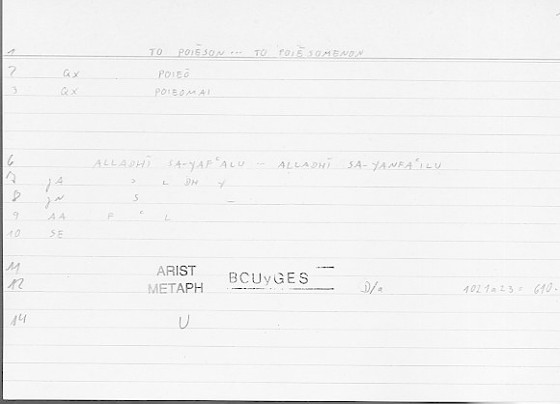 1 TO POIĒSON ... TO POIĒSOMENON
2 GX POIEŌ
3 GX POIEOMAI
6 ALLADHĪ SA-YAFʿALU - ALLADHĪ SA-YANFAʿILU
7 jA L DH Y
8 jN S –
9 AA F ʿ L
10 SE
11 ARIST
12 METAPH BCUyGES D/a 1021a23 = 610.
14 U